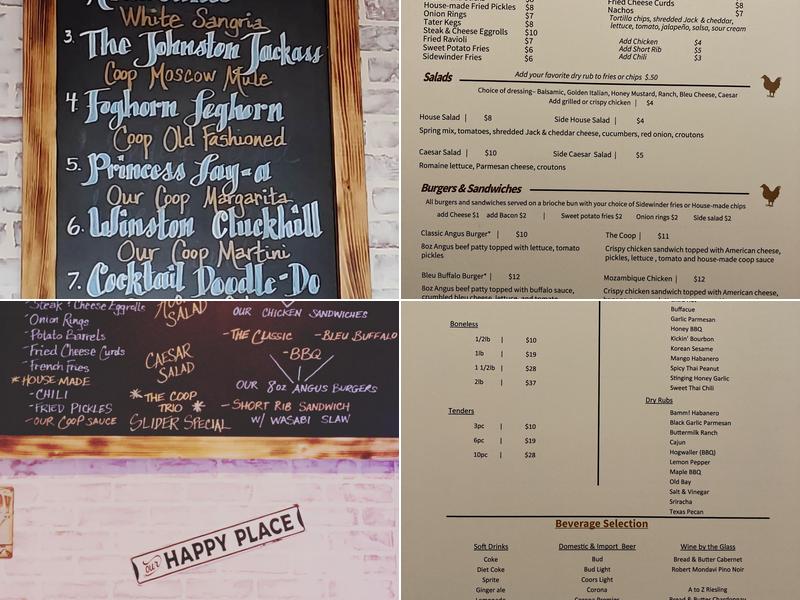 White Sangria
3. The Johnston Jackass
Coop Moscow Mule
4. Foghorn Leghorn
Coop Old Fashioned
5. Princess Lay-a
Our Coop Margarita
6. Winston Cluckhill
Our Coop Martini
7. Cocktail Doodle-Do
House-made Fried Pickles $8
Onion Rings $7
Tater Kegs $8
Steak & Cheese Eggrolls $10
Fried Ravioli $7
Sweet Potato Fries $6
Sidewinder Fries $6
Fried Cheese Curds $8
Nachos $7
Tortilla chips, shredded Jack & cheddar,
lettuce, tomato, jalapeño, salsa, sour cream
Add Chicken $4
Add Short Rib $5
Add Chili $3
Salads
Add your favorite dry rub to fries or chips $.50
Choice of dressing– Balsamic, Golden Italian, Honey Mustard, Ranch, Bleu Cheese, Caesar
Add grilled or crispy chicken | $4
House Salad | $8
Side House Salad | $4
Spring mix, tomatoes, shredded Jack & cheddar cheese, cucumbers, red onion, croutons
Caesar Salad | $10
Side Caesar Salad | $5
Romaine lettuce, Parmesan cheese, croutons
Burgers & Sandwiches
All burgers and sandwiches served on a brioche bun with your choice of Sidewinder fries or House-made chips
add Cheese $1 add Bacon $2 | Sweet potato fries $2 Onion rings $2 Side salad $2
Classic Angus Burger* | $10
8oz Angus beef patty topped with lettuce, tomato
pickles
The Coop | $11
Crispy chicken sandwich topped with American cheese,
pickles, lettuce , tomato and house-made coop sauce
Bleu Buffalo Burger* | $12
8oz Angus beef patty topped with buffalo sauce,
crumbled bleu cheese, lettuce, and tomato
Mozambique Chicken | $12
Crispy chicken sandwich topped with American cheese,
-Steak & Cheese Eggrolls
-Onion Rings
-Potato Barrels
-Fried Cheese Curds
-French Fries
*HOUSE MADE
-CHILI
-FRIED PICKLES
-OUR COOP SAUCE
SALAD
CAESAR
SALAD
*THE COOP
TRIO *
SLIDER SPECIAL
OUR CHICKEN SANDWICHES
-THE CLASSIC -BLEU BUFFALO
-BBQ
OUR 8oz ANGUS BURGERS
-SHORT RIB SANDWICH
W/ WASABI SLAW
our HAPPY PLACE
Boneless
1/2lb | $10
1lb | $19
1 1/2lb | $28
2lb | $37
Tenders
3pc | $10
6pc | $19
10pc | $28
Buffacue
Garlic Parmesan
Honey BBQ
Kickin' Bourbon
Korean Sesame
Mango Habanero
Spicy Thai Peanut
Stinging Honey Garlic
Sweet Thai Chili
Dry Rubs
Bamm! Habanero
Black Garlic Parmesan
Buttermilk Ranch
Cajun
Hogwaller (BBQ)
Lemon Pepper
Maple BBQ
Old Bay
Salt & Vinegar
Sriracha
Texas Pecan
Beverage Selection
Soft Drinks
Coke
Diet Coke
Sprite
Ginger ale
Lemonade
Domestic & Import Beer
Bud
Bud Light
Coors Light
Corona
Corona Premier
Wine by the Glass
Bread & Butter Cabernet
Robert Mondavi Pino Noir
A to Z Riesling
Bread & Butter Chardonnay